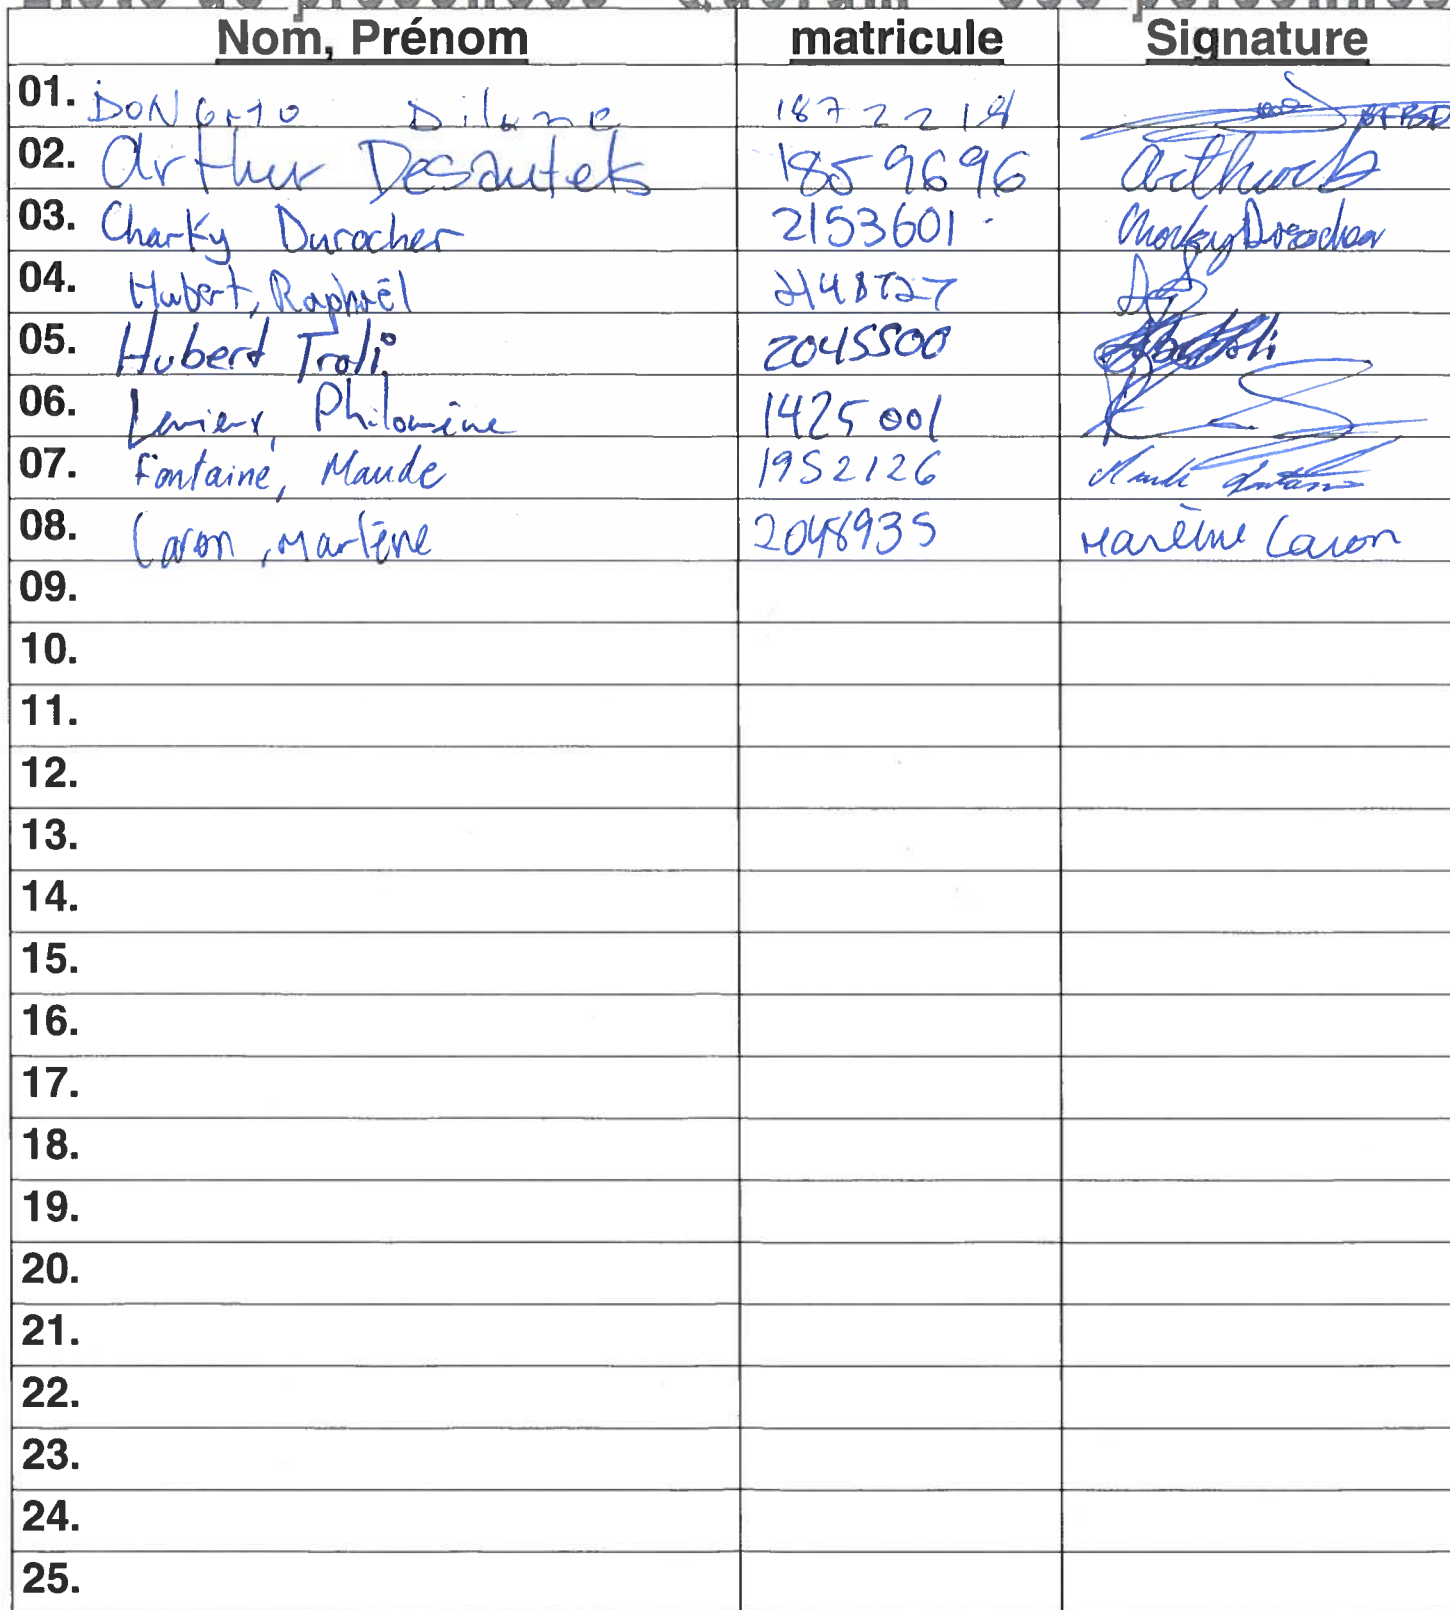 Liste de présences Quorum personnes
Nom, Prénom matricule Signature
01. Dilane 1872219
02. Arthur Desautels 1859696
03. Charky Durocher 2153601 Charky Durocher
04. Hubert, Raphaël 2148727
05. Hubert Troli 2045500
06. Lemieux, Philomène 1425001
07. Fontaine, Maude 1952126 Maude Fontaine
08. Caron, Marlène 2048935 Marlène Caron
09.
10.
11.
12.
13.
14.
15.
16.
17.
18.
19.
20.
21.
22.
23.
24.
25.